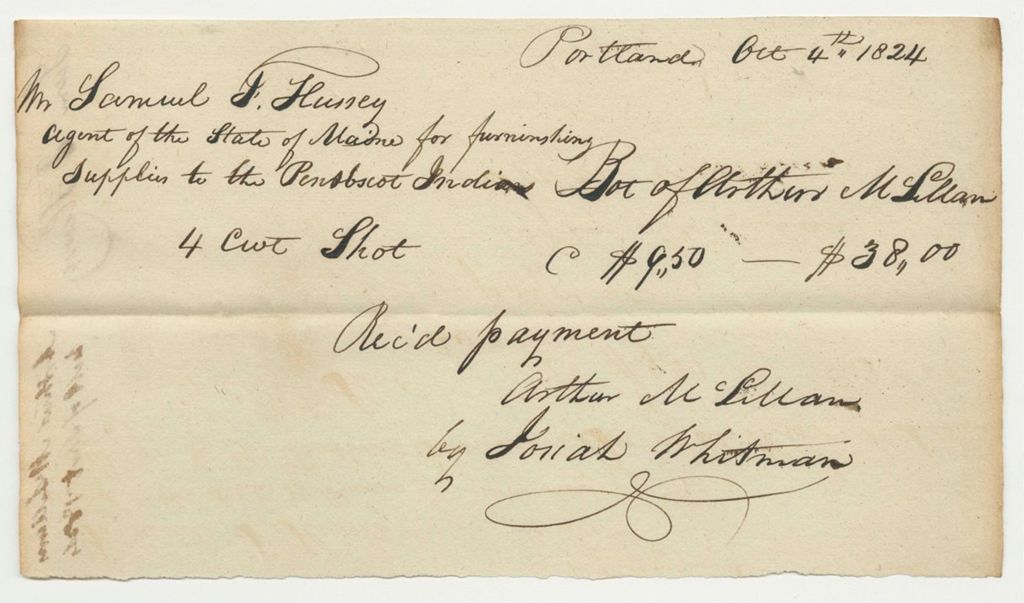 Portland Oct 4th 1824
Mr Samuel F. Hussey
agent of the State of Maine for furninshing
supplies to the Penobscot Indians Bot of Arthur McLellan
4 Cwt Shot @ $9,,50 — $38,,00
Rec'd payment
Arthur McLellan
by Josiah Whitman